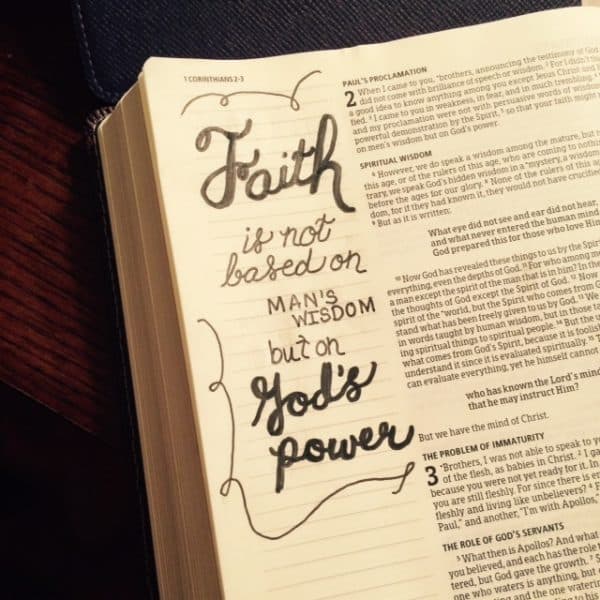 1 CORINTHIANS 2-3
Faith
is not
based on
MAN'S
WISDOM
but on
God's
power
PAUL'S PROCLAMATION
2 When I came to you, "brothers, announcing the testimony of God
did not come with brilliance of speech or wisdom. ² For I didn't
a good idea to know anything among you except Jesus Christ and
fied. ³ I came to you in weakness, in fear, and in much trembling. ⁴
and my proclamation were not with persuasive words of wisdom
powerful demonstration by the Spirit, ⁵ so that your faith might
on men's wisdom but on God's power.
SPIRITUAL WISDOM
⁶ However, we do speak a wisdom among the mature, but
this age, or of the rulers of this age, who are coming to nothing
trary, we speak God's hidden wisdom in a "mystery, a wisdom
before the ages for our glory. ⁸ None of the rulers of this age
dom, for if they had known it, they would not have crucified
⁹ But as it is written:
What eye did not see and ear did not hear,
and what never entered the human mind
God prepared this for those who love Him
¹⁰ Now God has revealed these things to us by the Spirit
everything, even the depths of God. ¹¹ For who among men
a man except the spirit of the man that is in him? In the
the thoughts of God except the Spirit of God. ¹² Now
spirit of the "world, but the Spirit who comes from G
stand what has been freely given to us by God. ¹³ We
in words taught by human wisdom, but in those ta
ing spiritual things to spiritual people. ¹⁴ But the u
what comes from God's Spirit, because it is foolish
understand it since it is evaluated spiritually. ¹⁵ T
can evaluate everything, yet he himself cannot
who has known the Lord's mind
that he may instruct Him?
But we have the mind of Christ.
THE PROBLEM OF IMMATURITY
3 "Brothers, I was not able to speak to yo
of the flesh, as babies in Christ. ² I ga
because you were not yet ready for it. In
you are still fleshly. For since there is en
fleshly and living like unbelievers? ⁴ F
Paul," and another, "I'm with Apollos,"
THE ROLE OF GOD'S SERVANTS
⁵ What then is Apollos? And what
you believed, and each has the role t
tered, but God gave the growth. ⁷
one who waters is anything, but
and the one watering